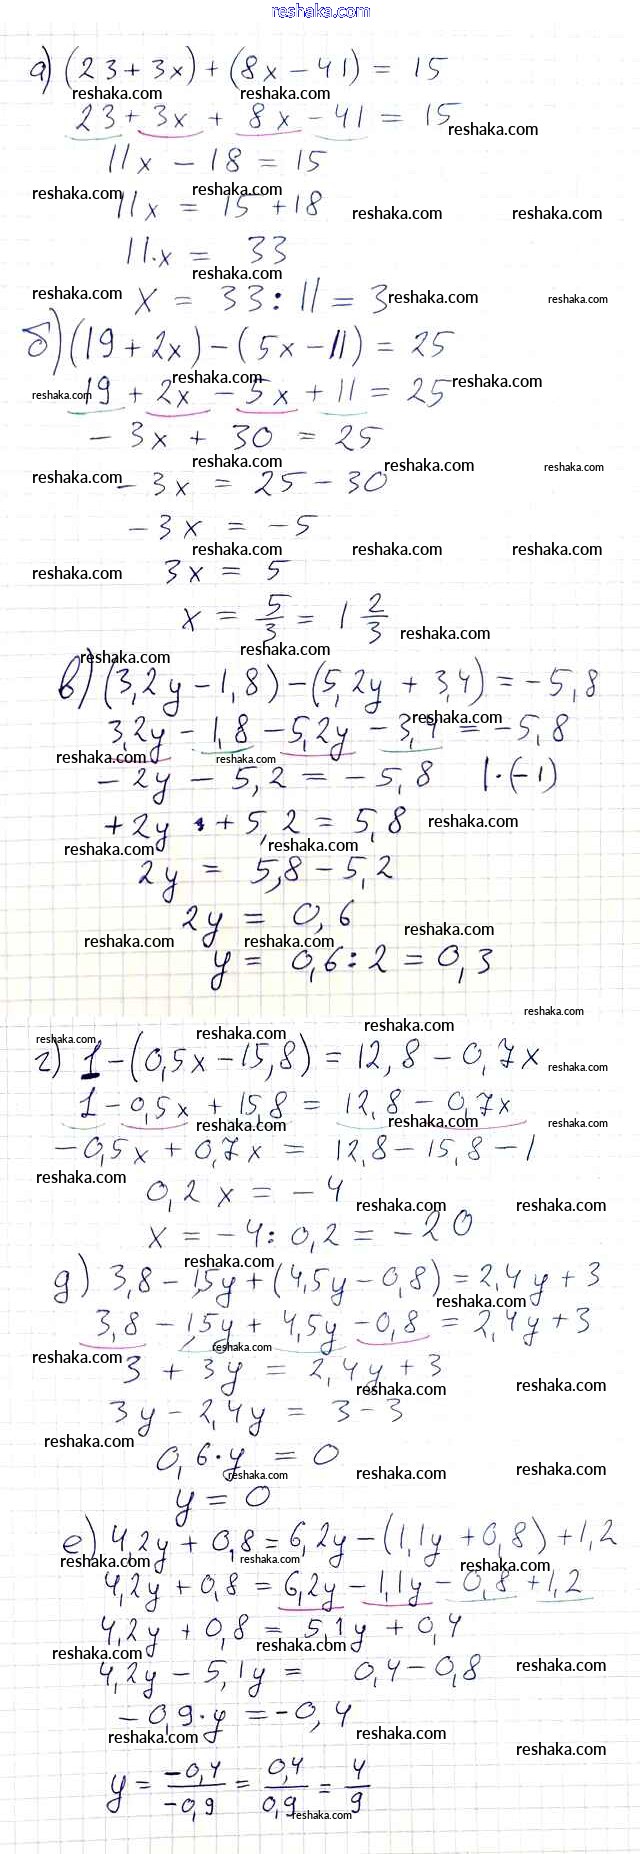 reshaka.com
а) (23 + 3x) + (8x - 41) = 15
23 + 3x + 8x - 41 = 15
11x - 18 = 15
11x = 15 + 18
11·x = 33
x = 33 : 11 = 3
б) (19 + 2x) - (5x - 11) = 25
19 + 2x - 5x + 11 = 25
- 3x + 30 = 25
- 3x = 25 - 30
- 3x = - 5
3x = 5
x = 5/3 = 1 2/3
в) (3,2y - 1,8) - (5,2y + 3,4) = - 5,8
3,2y - 1,8 - 5,2y - 3,4 = - 5,8
- 2y - 5,2 = - 5,8 |·(-1)
+ 2y + 5,2 = 5,8
2y = 5,8 - 5,2
2y = 0,6
y = 0,6 : 2 = 0,3
г) 1 - (0,5x - 15,8) = 12,8 - 0,7x
1 - 0,5x + 15,8 = 12,8 - 0,7x
- 0,5x + 0,7x = 12,8 - 15,8 - 1
0,2x = - 4
x = - 4 : 0,2 = - 20
д) 3,8 - 1,5y + (4,5y - 0,8) = 2,4y + 3
3,8 - 1,5y + 4,5y - 0,8 = 2,4y + 3
3 + 3y = 2,4y + 3
3y - 2,4y = 3 - 3
0,6·y = 0
y = 0
е) 4,2y + 0,8 = 6,2y - (1,1y + 0,8) + 1,2
4,2y + 0,8 = 6,2y - 1,1y - 0,8 + 1,2
4,2y + 0,8 = 5,1y + 0,4
4,2y - 5,1y = 0,4 - 0,8
- 0,9·y = - 0,4
y = -0,4/-0,9 = 0,4/0,9 = 4/9